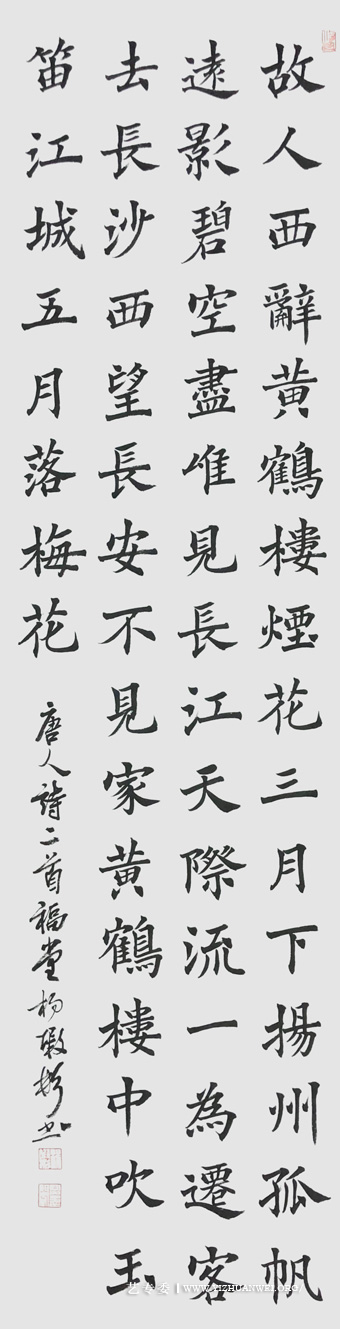 故人西辭黃鶴樓煙花三月下揚州孤帆
遠影碧空盡唯見長江天際流一為遷客
去長沙西望長安不見家黃鶴樓中吹玉
笛江城五月落梅花
唐人詩二首福堂楊書
艺专委 | WWW.YIZHUANWEI.ORG